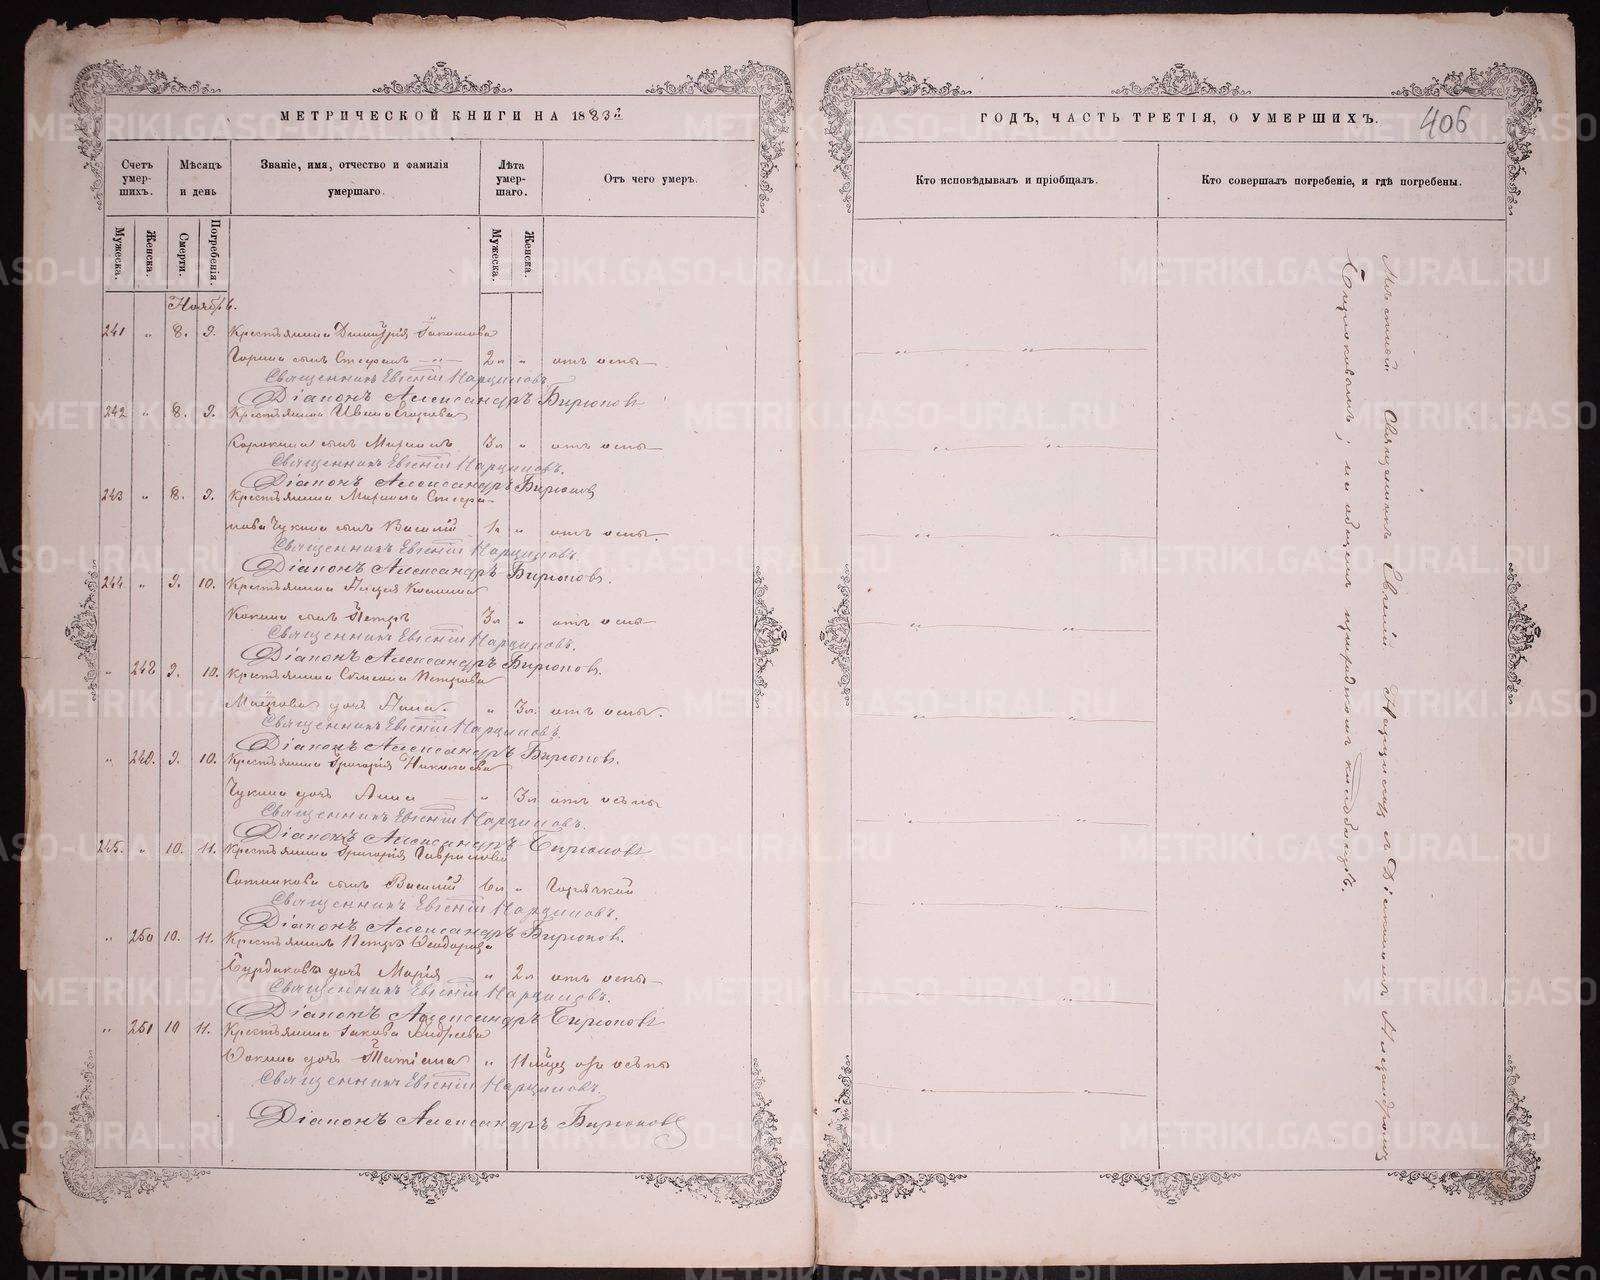 МЕТРИЧЕСКОЙ КНИГИ НА 1883й
ГОДЪ, ЧАСТЬ ТРЕТІЯ, О УМЕРШИХЪ.
406
Счетъ умер-шихъ.
Мѣсяцъ и день
Званіе, имя, отчество и фамилія умершаго.
Лѣта умер-шаго.
Отъ чего умеръ.
Кто исповѣдывалъ и пріобщалъ.
Кто совершалъ погребеніе, и гдѣ погребены.
Мужеска.
Женска.
Смерти.
Погребенія.
Мужеска.
Женска.
Ноябрь.
241 „ 8. 9. Крестьянина Димитрія
сынъ Стефанъ 2 л „ отъ оспы
Священникъ Евгеній Нарциссовъ
Діаконъ Александръ Бирюковъ
242 „ 8. 9. Крестьянина Ивана
сынъ Михаилъ 3 л „ отъ оспы
Священникъ Евгеній Нарциссовъ.
Діаконъ Александръ Бирюковъ
243 „ 8. 9. Крестьянина Михаила Стефа-
нова Чукина сынъ Василій 1 л „ отъ оспы
Священникъ Евгеній Нарциссовъ.
Діаконъ Александръ Бирюковъ.
244 „ 9. 10. Крестьянина
Кокина сынъ Петръ 3 л „ отъ оспы
Священникъ Евгеній Нарциссовъ.
Діаконъ Александръ Бирюковъ.
„ 248 9. 10. Крестьянина Семена Петрова
дочь Анна. „ 3 л. отъ оспы.
Священникъ Евгеній Нарциссовъ.
Діаконъ Александръ Бирюковъ.
„ 249. 9. 10. Крестьянина Григорія Николаева
Чукина дочь Анна „ 3 л отъ оспы
Священникъ Евгеній Нарциссовъ.
Діаконъ Александръ Бирюковъ
245. „ 10. 11. Крестьянина Григорія Гаврилова
Сотникова сынъ Василій 6 л „ Горячкой
Священникъ Евгеній Нарциссовъ.
Діаконъ Александръ Бирюковъ.
„ 250 10. 11. Крестьянина Петра Ѳеодорова
Бурдакова дочь Марія „ 2 л отъ оспы
Священникъ Евгеній Нарциссовъ.
Діаконъ Александръ Бирюковъ
„ 251 10 11. Крестьянина Іакова Андреева
дочь Татіана „ 11 отъ оспы
Священникъ Евгеній Нарциссовъ.
Діаконъ Александръ Бирюковъ
Мѣстный Священникъ Евгеній Нарциссовъ съ Діакономъ Александромъ
Бирюковымъ; на общемъ приходскомъ кладбищѣ.
METRIKI.GASO-URAL.RU